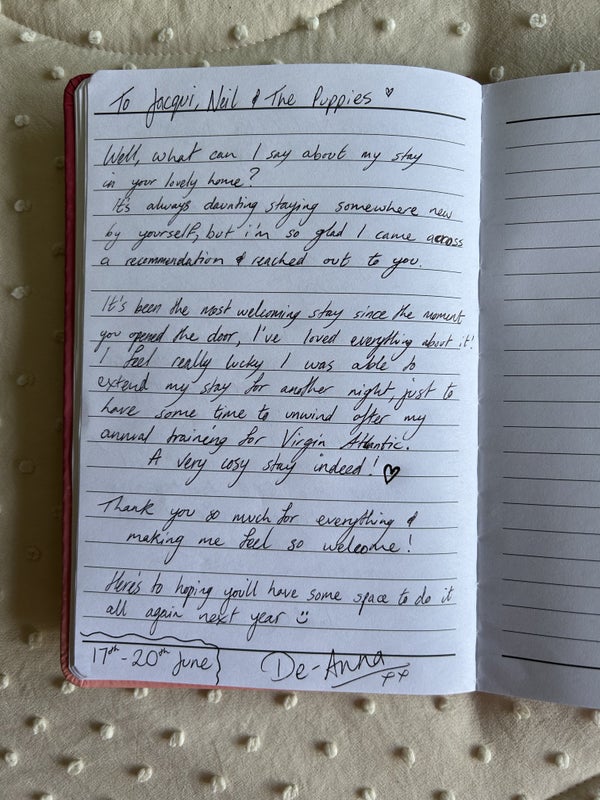 To Jacqui, Neil & The Puppies ♡
Well, what can I say about my stay
in your lovely home?
It's always daunting staying somewhere new
by yourself, but i'm so glad I came across
a recommendation & reached out to you.
It's been the most welcoming stay since the moment
you opened the door, I've loved everything about it!
I feel really lucky I was able to
extend my stay for another night, just to
have some time to unwind after my
annual training for Virgin Atlantic.
A very cosy stay indeed! ♡
Thank you so much for everything &
making me feel so welcome!
Here's to hoping you'll have some space to do it
all again next year ☺
17th - 20th June
De-Anna
xx